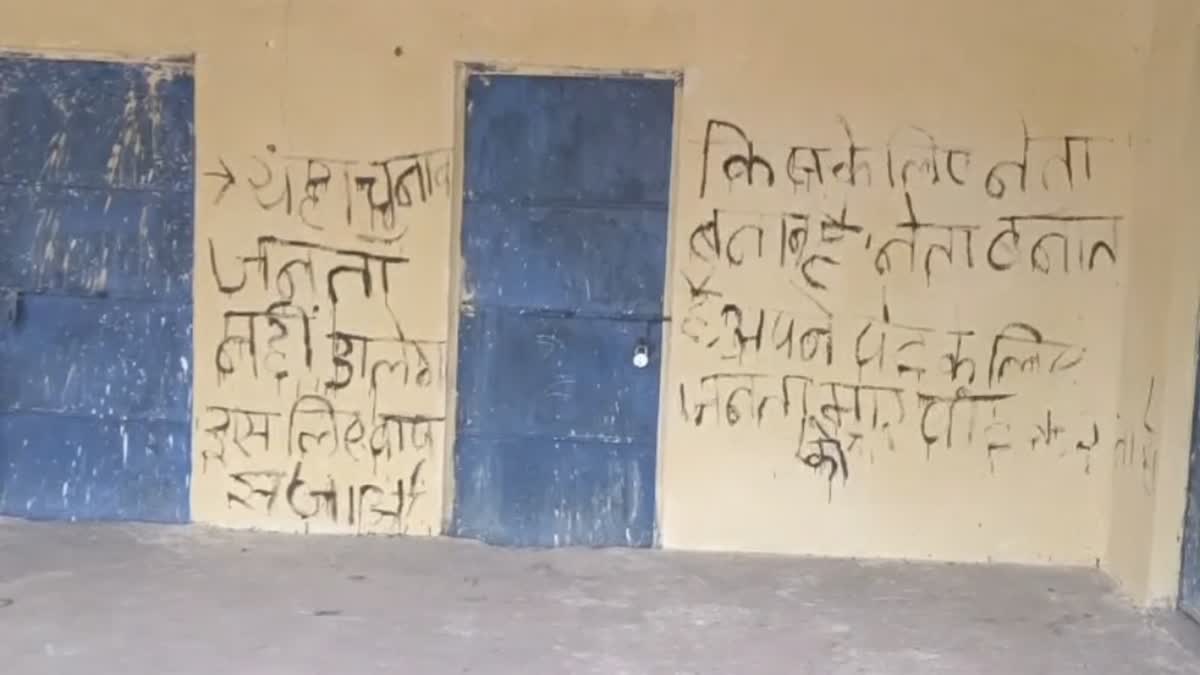 → यहा चुनाव
जनता
नहीं डालेगा
इस लिए वाप
स जाओ
किसके लिए नेता
बनाब है, नेता बनात
है अपने पेट के लिए
जनता को मार पीट